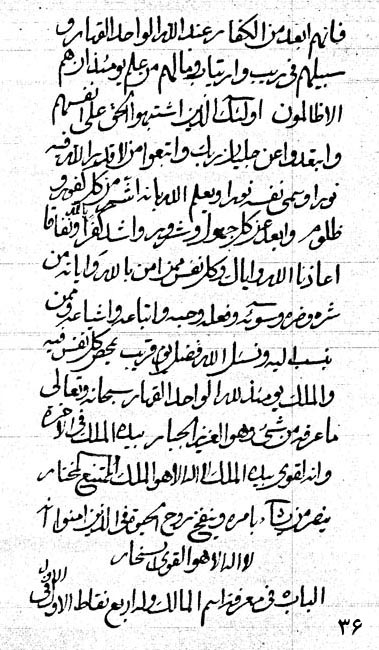 فانهم ابعد من الكفار عند الله الواحد القهار و
سبيلهم في ريب وارتياب وما لهم من علم يومئذ ان هم
الا ظالمون اولئك الذين اشتبهوا الحق على انفسهم
وابتعدوا عن رب واتبعوا من الله فيه
نورا وسمى نفسه نورا ويعلم الله بانه اشر من كل كفور و
ظلوم وابعد عن كل جهول وشرور واشد كفرا بالله ونفاقا
اعاذنا الله واياك وكل نفس ممن امن بالله واياته من
شره وضره وسوئه وفعله وحبه واتباعه واشياعه وممن
ينسب اليه ونسئل الله فضل يوم قريب يمحص كل نفس فيه
والملك يومئذ لله الواحد القهار سبحانه وتعالى
ما عرفه من شيء وهو العزيز الجبار بيده الملك في الاخرة
وانه لقوى بيده الملك لا اله الا هو الملك الممتنع المختار
ينصر من يشاء بامره وينفخ روح الحيوة في الذين امنوا
لا اله الا هو القوى
الباب في معرفة اسم المالك وله اربع نقاط الاول الاول في
٣٦